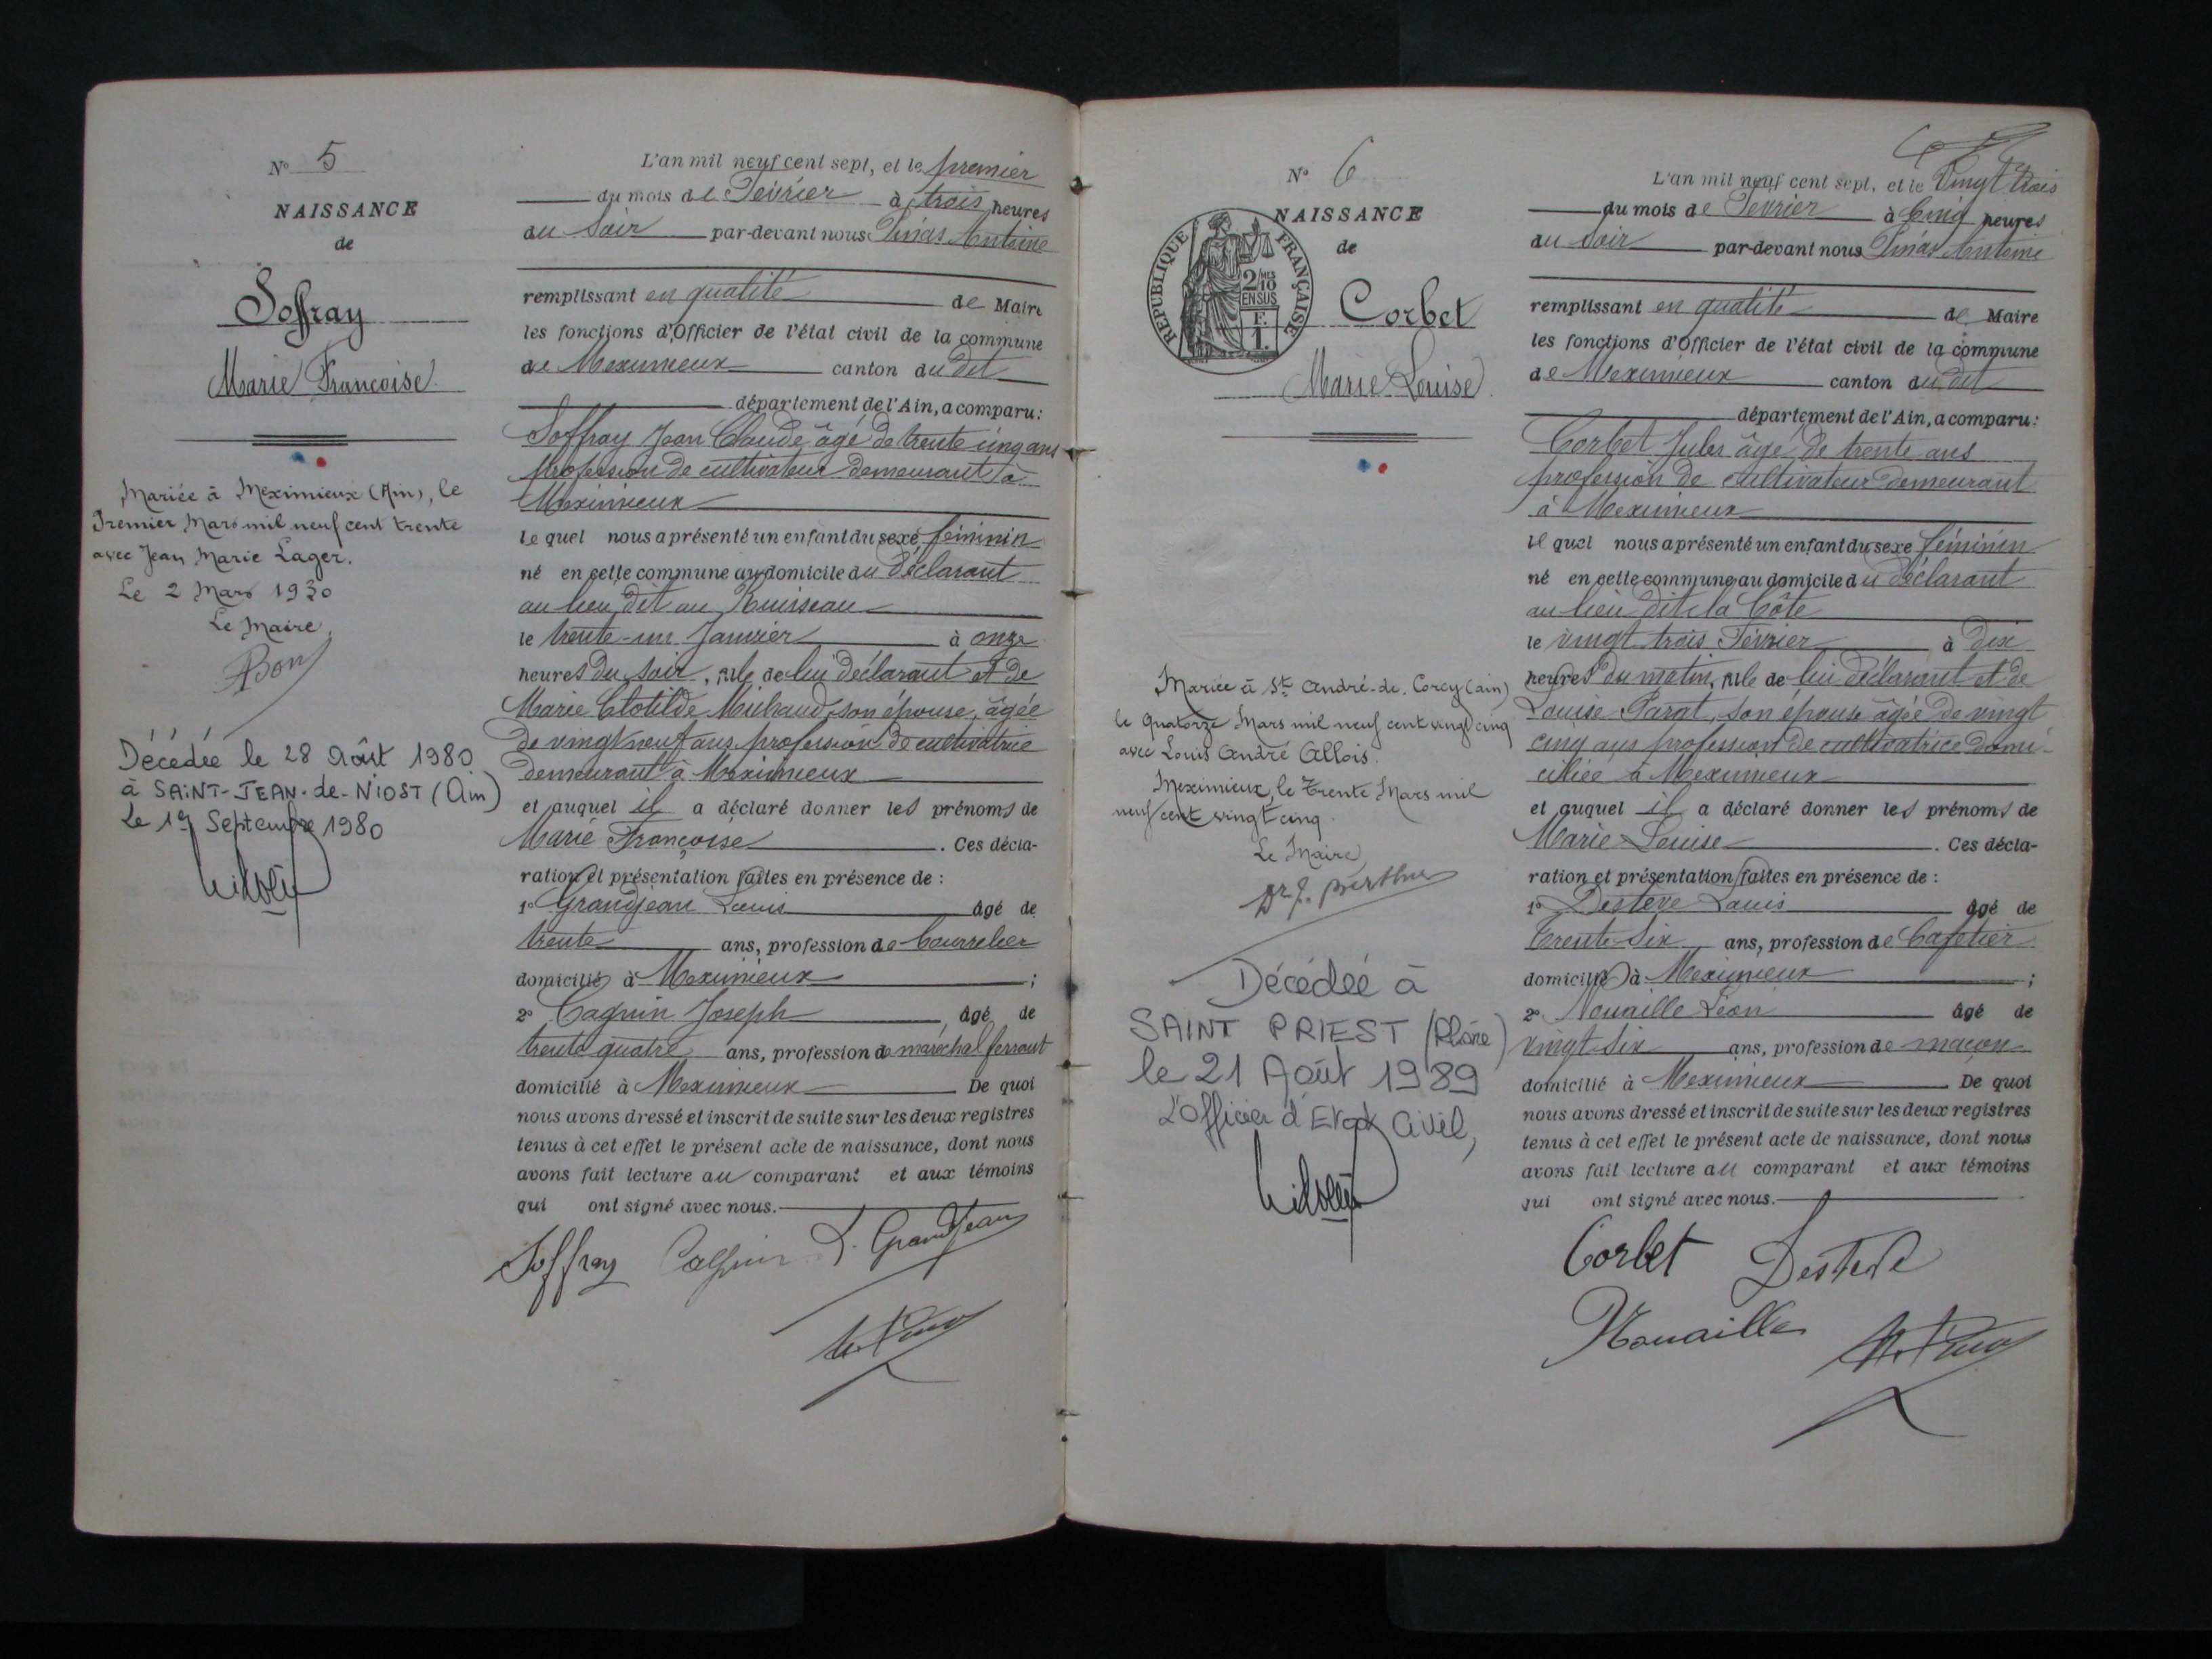 N° 5
NAISSANCE
de
Soffray
Marie Françoise
Mariée à Meximieux (Ain), le
Premier Mars mil neuf cent trente
avec Jean Marie Lager.
Le 2 Mars 1930
Le Maire,
Décédée le 28 Août 1980
à SAINT-JEAN-de-NIOST (Ain)
Le 1er Septembre 1980
L'an mil neuf cent sept, et le premier
du mois de Février à trois heures
du soir par-devant nous Pinás Antoine
remplissant en qualité de Maire
les fonctions d'Officier de l'état civil de la commune
de Meximieux canton du dit
département de l'Ain, a comparu :
Soffray Jean Claude âgé de trente cinq ans
profession de cultivateur demeurant à
Meximieux
le quel nous a présenté un enfant du sexe féminin
né en cette commune au domicile du Déclarant
au lieu dit au Ruisseau
le trente-un Janvier à onze
heures du soir, fille de lui déclarant et de
Marie Clotilde Michaud, son épouse, âgée
de vingt neuf ans profession de cultivatrice
demeurant à Meximieux
et auquel il a déclaré donner les prénoms de
Marie Françoise . Ces décla-
ration et présentation faites en présence de :
1° Grandjean Louis âgé de
trente ans, profession de bourrelier
domicilié à Meximieux ;
2° Cagnin Joseph âgé de
trente quatre ans, profession de maréchal ferrant
domicilié à Meximieux De quoi
nous avons dressé et inscrit de suite sur les deux registres
tenus à cet effet le présent acte de naissance, dont nous
avons fait lecture au comparant et aux témoins
qui ont signé avec nous.
Soffray Cagnin L. Grandjean
N° 6
NAISSANCE
de
RÉPUBLIQUE FRANÇAISE
2/10 MES
EN SUS
F.
1.
Corbet
Marie Louise
Mariée à St André-de-Corcy (Ain)
le Quatorze Mars mil neuf cent vingt cinq
avec Louis André Allois.
Meximieux, le Trente Mars mil
neuf cent vingt cinq
Le Maire,
Dr J. Berthier
Décédée à
SAINT PRIEST (Rhône)
le 21 Août 1989
L'officier d'Etat Civil,
L'an mil neuf cent sept, et le Vingt trois
du mois de Février à Cinq heures
du soir par-devant nous Pinás Antoine
remplissant en qualité de Maire
les fonctions d'Officier de l'état civil de la commune
de Meximieux canton du dit
département de l'Ain, a comparu :
Corbet Jules âgé de trente ans
profession de cultivateur demeurant
à Meximieux
le quel nous a présenté un enfant du sexe féminin
né en cette commune au domicile du Déclarant
au lieu dit la Côte
le vingt trois Février à dix
heures du matin, fille de lui déclarant et de
Louise Parat, son épouse âgée de vingt
cinq ans profession de cultivatrice domi-
ciliée à Meximieux
et auquel il a déclaré donner les prénoms de
Marie Louise . Ces décla-
ration et présentation faites en présence de :
1° Destève Louis âgé de
trente six ans, profession de Cafetier
domicilié à Meximieux ;
2° Nouaille Léon âgé de
vingt six ans, profession de maçon
domicilié à Meximieux De quoi
nous avons dressé et inscrit de suite sur les deux registres
tenus à cet effet le présent acte de naissance, dont nous
avons fait lecture au comparant et aux témoins
qui ont signé avec nous.
Corbet Destève
Nouaille